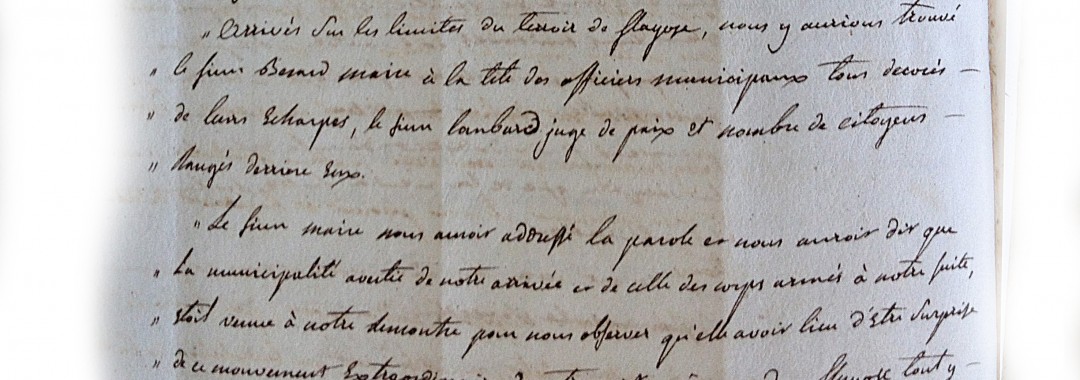 " arrivés sur les limites du terroir de Flayosc, nous y aurions trouvé
" le sieur Berard maire à la tête des officiers municipaux tous decorés —
" de leurs Echarpes, le sieur lombard juge de paix et nombre de citoyens —
" Rangés derriere Eux.
" Le sieur maire nous auroit addressé la parole et nous auroit dit que
" La municipalité avertie de notre arrivée et de celle des corps armés à notre suite,
" étoit venue à notre rencontre pour nous observer qu'elle avoit lieu d'Etre Surprise
" de ce mouvement Extraordinaire Flayosc tout y —